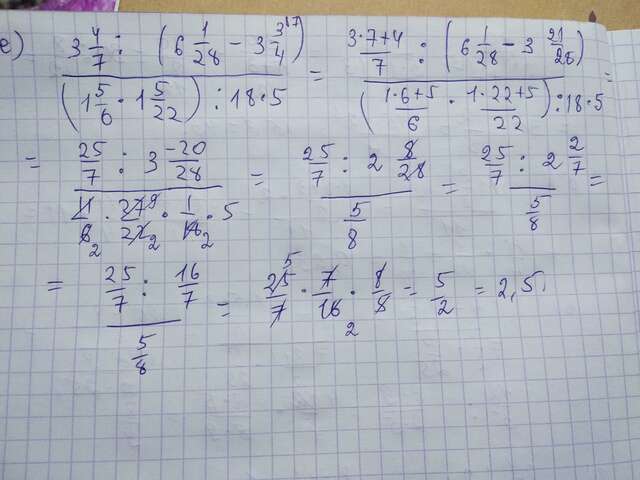 е) 3 4/7 : (6 1/28 - 3 3/4 ^17) / (1 5/6 · 1 5/22) : 18 · 5 = (3·7+4)/7 : (6 1/28 - 3 21/28) / ((1·6+5)/6 · (1·22+5)/22) : 18 · 5 =
= 25/7 : 3 -20/28 / 11/6 2 · 27 9/22 2 · 1/18 2 · 5 = 25/7 : 2 8/28 / 5/8 = 25/7 : 2 2/7 / 5/8 =
= 25/7 : 16/7 / 5/8 = 25 5/7 · 7/16 2 · 8/8 = 5/2 = 2,5.